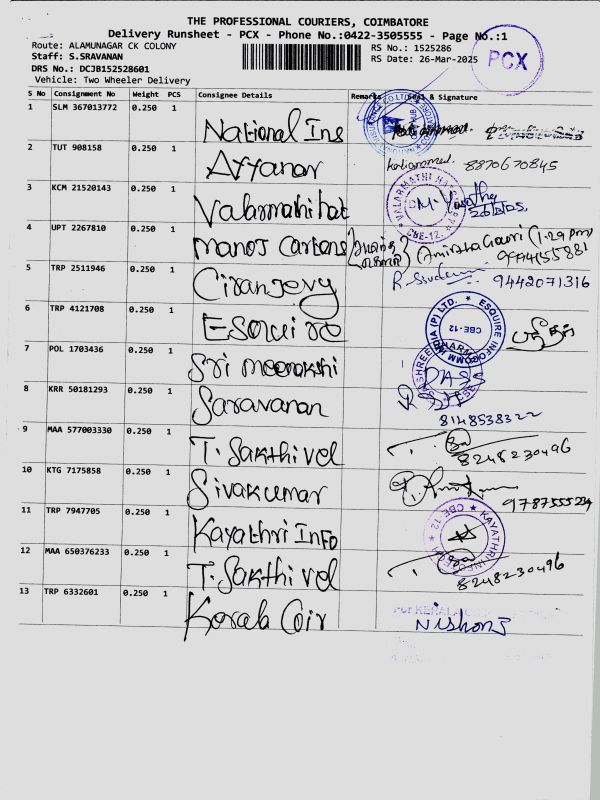 THE PROFESSIONAL COURIERS, COIMBATORE
Delivery Runsheet - PCX - Phone No.:0422-3505555 - Page No.:1
Route: ALAMUNAGAR CK COLONY
RS No.: 1525286
Staff: S.SRAVANAN
RS Date: 26-Mar-2025
PCX
DRS No.: DCJB152528601
Vehicle: Two Wheeler Delivery
S No Consignment No Weight PCS Consignee Details Remarks Seal & Signature
1 SLM 367013772 0.250 1 National Ins
2 TUT 908158 0.250 1 Ayyanar 8870670845
3 KCM 21520143 0.250 1 Valarmathi hat
CBE-12.
4 UPT 2267810 0.250 1 Manoj Cartons (1.29 pm)
5 TRP 2511946 0.250 1 Ciranjevy 9442071316
6 TRP 4121708 0.250 1 Esquire
ESQUIRE INFOCOMM INDIA (P) LTD.
CBE-12
7 POL 1703436 0.250 1 Sri meenakshi
8 KRR 50181293 0.250 1 Saravanan
8148538322
9 MAA 577003330 0.250 1 T. Sakthi vel 8248230496
10 KTG 7175858 0.250 1 Sivakumar
11 TRP 7947705 0.250 1 Kayathri Info
KAYATHRI INFO
CBE-12
12 MAA 650376233 0.250 1 T. Sakthi vel 8248230496
13 TRP 6332601 0.250 1 Kerala Coir
For KERALA